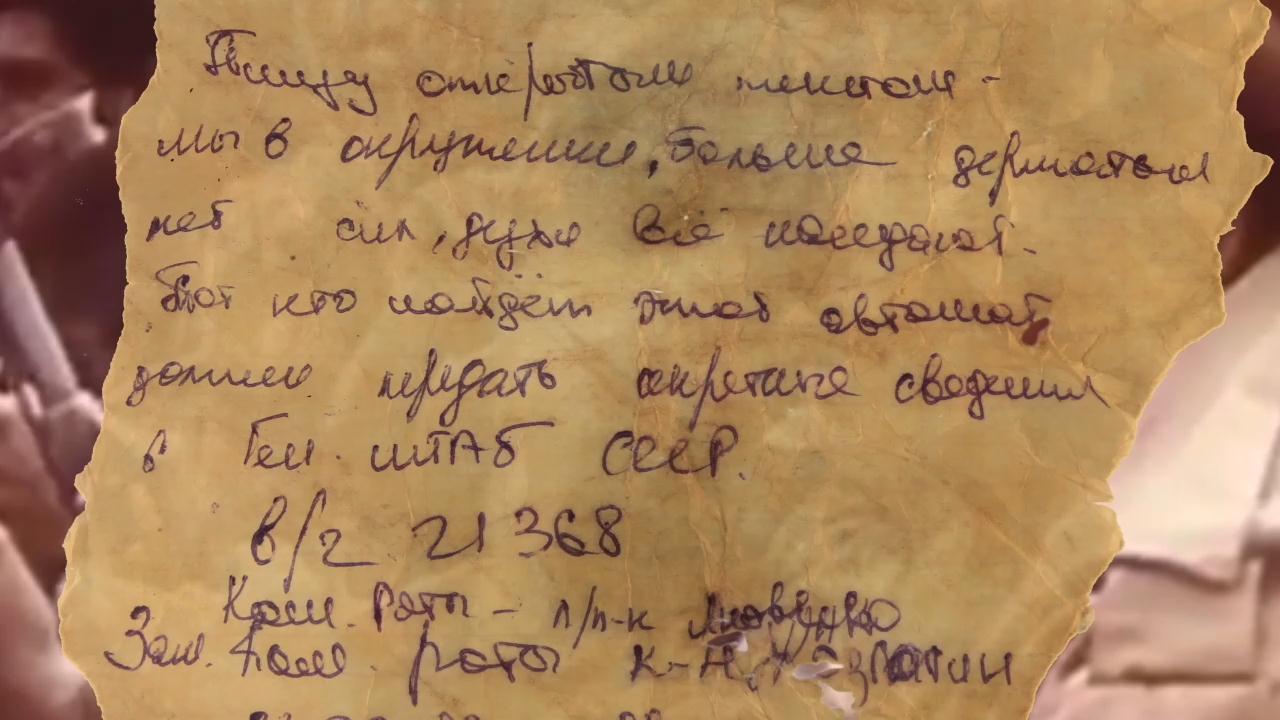 Пишу открытым текстом -
мы в окружении, больше держаться
нет сил, духи всё наседают.
Тот кто найдёт этот автомат
должен передать секретные сведения
в Ген. штАб СССР.
в/г 21368
Ком. Роты - п/п-к
Зам. Ком. роты к-н